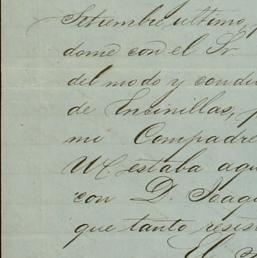 Setiembre ultimo,
dome con el Sr
del modo y condi
de Encinillas, p
mi Compadre
estaba aqu
con D. Joaqu
que tanto resis
El